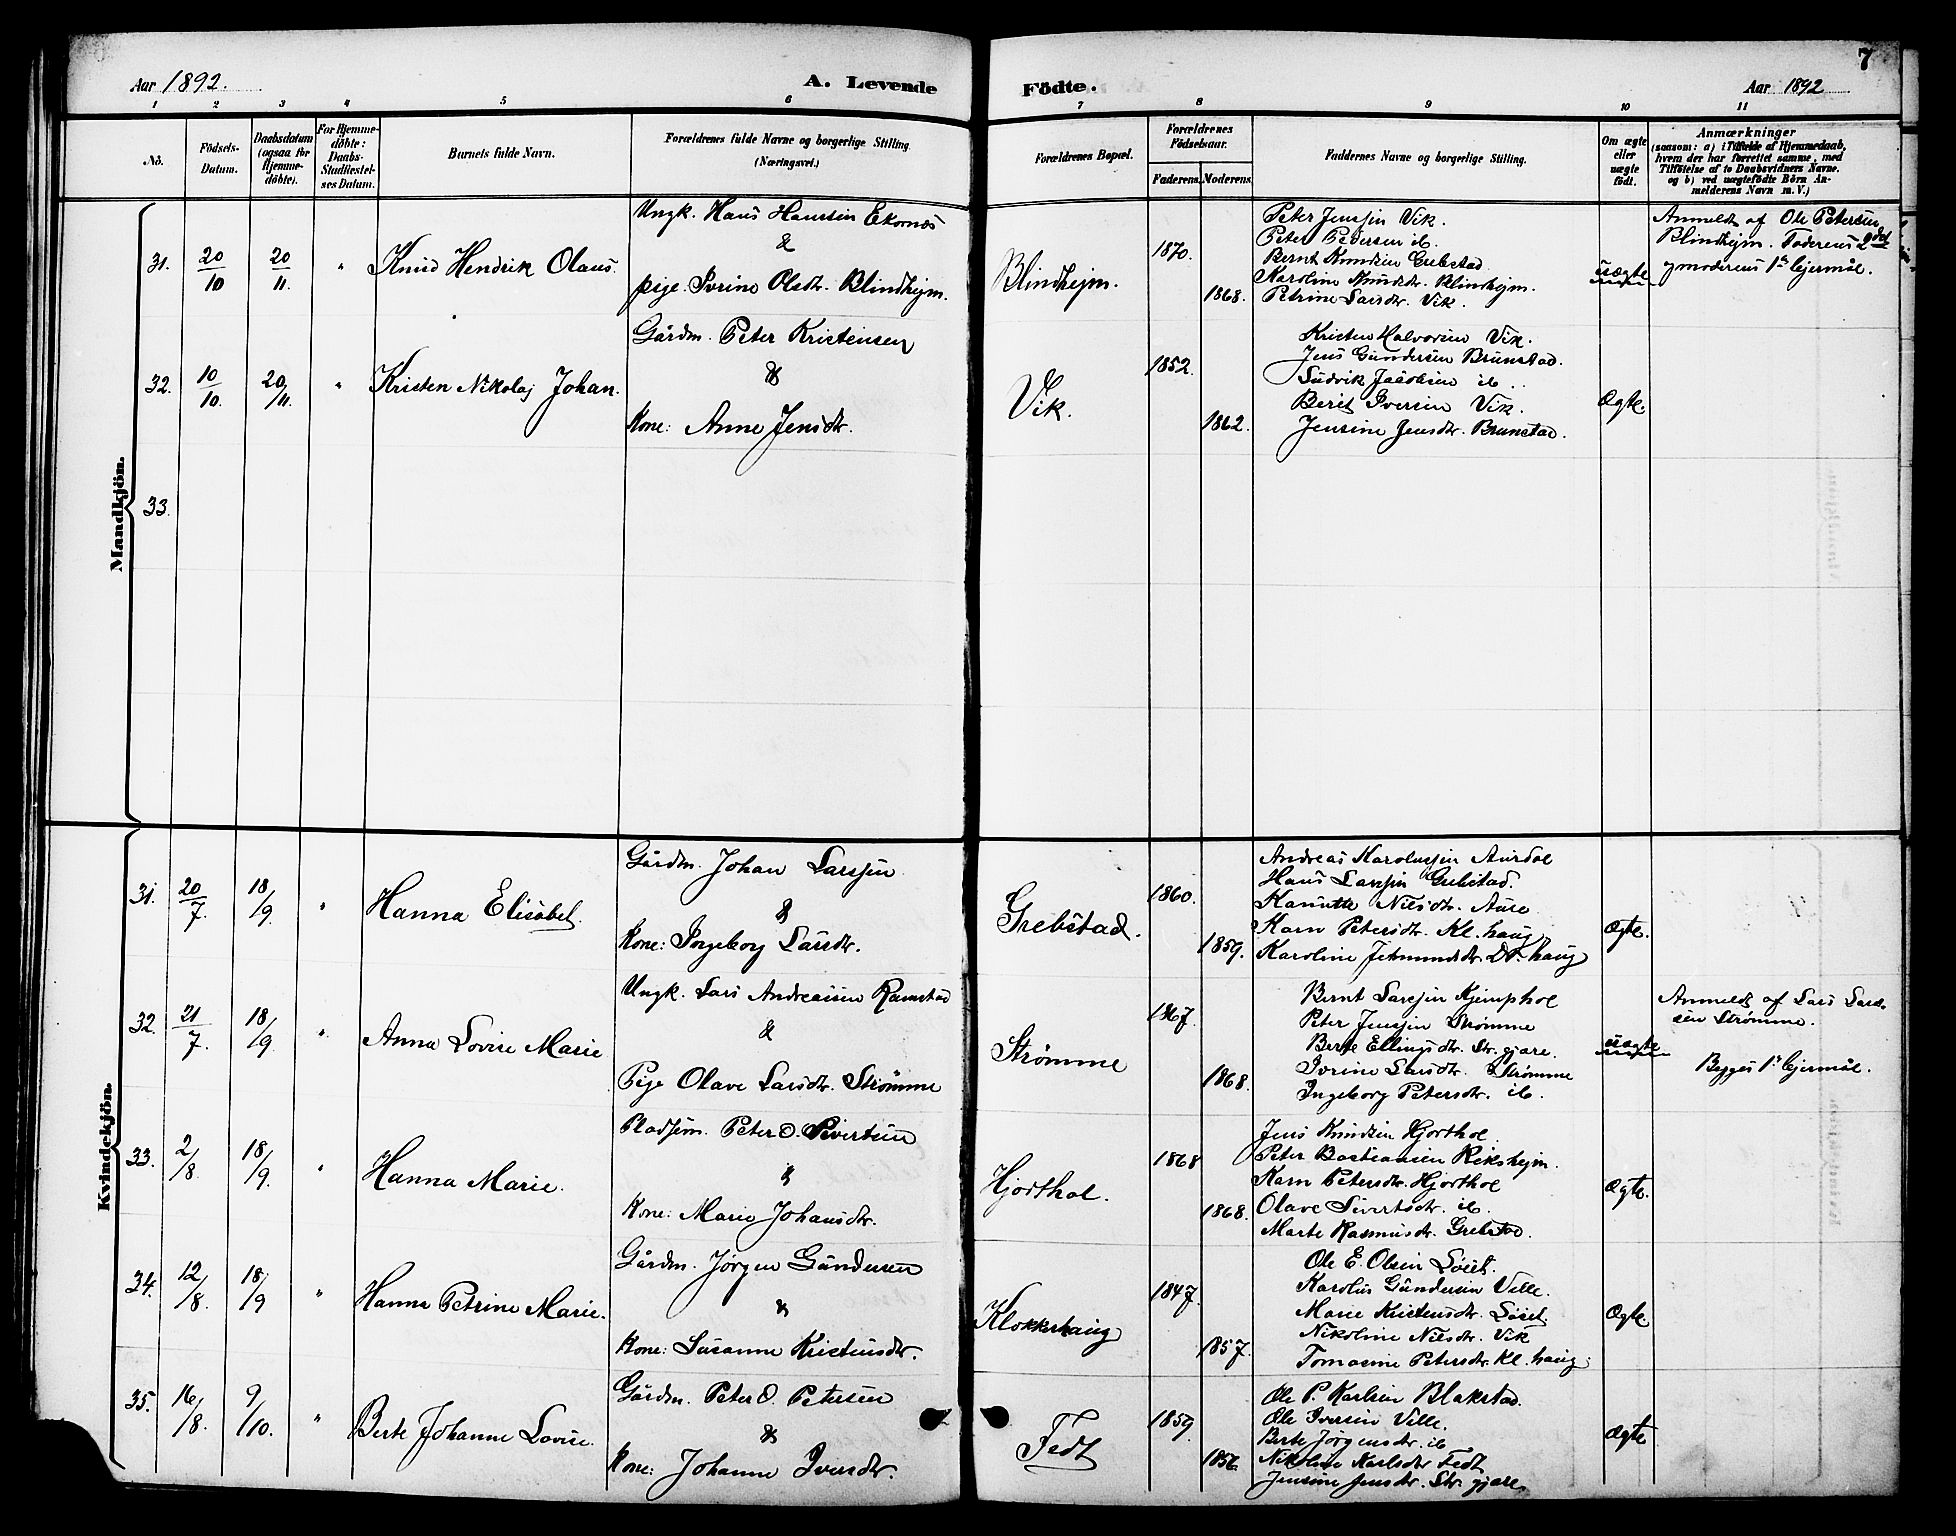 7
Aar 1892.
A. Levende
Födte.
Aar 1892
1 2 3 4 5 6 7 8 9 10 11
No.
Födsels-Datum.
Daabsdatum (ogsaa for Hjemme-döbte).
For Hjemme-döbte: Daabs-Stadfæstel-ses Datum.
Barnets fulde Navn.
Forældrenes fulde Navne og borgerlige Stilling. (Næringsvei.)
Forældrenes Bopæl.
Forældrenes Födselsaar.
Faderens. Moderens.
Faddernes Navne og borgerlige Stilling.
Om ægte eller uægte födt.
Anmærkninger
(saasom: a) i Tilfælde af Hjemmedaab, hvem der har forrettet samme, med Tilföielse af to Daabsvidners Navne, og b) ved uægtefödte Börn An-melderens Navn m. V.)
Mandkjön.
31. 20/10 20/11. " Knud Hendrik Olaus.
Ungk. Hans Hanssen Ekornæs
&
pige Ivrine Olsdtr. Blindhejm.
Blindhejm.
1870.
1868.
Peter Jenssen Vik.
Peter Pedersen ib.
Bernt Knudsen Grebstad
Karoline Knudsdtr. Blindhejm.
Petrine Larsdtr. Vik.
uægte
Anmeldt af Ole Petersen
Blindhejm. Faderens 2det
og moderens 1ste lejermål.
32. 10/10. 20/11. " Kristen Nikolaj Johan.
Gårdm. Peter Kristensen
&
Kone: Anne Jensdtr.
Vik.
1852.
1862.
Kristen Halvorsen Vik.
Jens Gundersen Brunstad.
Ludvik Jacobsen ib.
Berit Iversen Vik.
Jensine Jensdtr. Brunstad.
Ægte.
33.
Kvindekjön.
31. 20/7. 18/9. " Hanna Elisabet.
Gårdm. Johan Larssen
&
Kone: Ingeborg Larsdtr.
Grebstad.
1860.
1859.
Andreas Karolussen Aurdal
Hans Larssen Grebstad.
Nilsdtr. Aure
Karn Petersdtr. Kl. haug
Karoline Jetmundsdtr. Do. haug
Ægte.
32. 21/7. 18/9. " Anna Lovise Marie
Ungk. Lars Andreassen Ramstad
&
Pige Olave Larsdtr. Strømme
Strømme
1867.
1868.
Bernt Larssen Kjemphol
Peter Jenssen Strømme
Berte Ellingsdtr. Str. gjære.
Ivrine Larsdtr. Strømme
Ingeborg Petersdtr. ib.
uægte
Anmeldt af Lars Lars-
sen Strømme.
Begges 1ste lejermål.
33. 2/8. 18/9. " Hanna Marie.
Pladsem. Peter O. Sivertsen
&
Kone: Marie Johansdtr.
Hjorthol.
1868
1868.
Jens Knudsen Hjorthol
Peter Bastiansen Rekshejm.
Karn Petersdtr. Hjorthol
Olave Sivertsdtr. ib.
Marte Rasmusdtr. Grebstad.
Ægte.
34. 12/8. 18/9 " Hanna Petrine Marie.
Gårdm. Jørgen Gundersen
&
Kone: Susanne Kristensdtr.
Klokkerhaug
1847.
1857.
Ole E. Olsen Løset.
Karolus Gundersen Velle.
Marie Kristensdtr. Løset.
Nikoline Nilsdtr. Vik
Tomasine Petersdtr. Kl. haug.
Ægte.
35. 16/8. 9/10. " Berte Johanne Lovise.
Gårdm. Peter O. Petersen
&
Kone: Johanne Iversdtr.
Fedt
1859
1856
Ole P. Karlsen Blakstad.
Ole Iversen Velle.
Berte Jørgensdtr. ib
Nikoline Karlsdtr Fedt
Jensine Jensdtr. Str. gjære.
Ægte